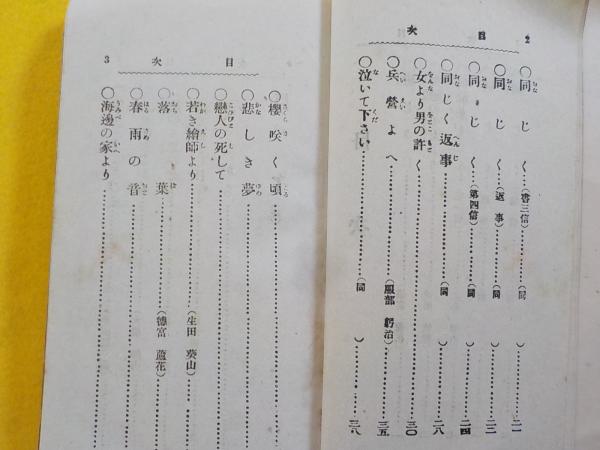 2　目次
○同じく（書三信）……（同　）…二一
○同じく（返事）……（同　）…二二
○同じく（第四信）……（同　）…二四
○同じく返事……（同　）…二八
○女より男の許く……三〇
○兵營よへ……（服部　躬治）…三五
○泣いて下さい……（同　）…三八
目次　3
○櫻咲く頃……
○悲しき夢……
○戀人の死して……
○若き繪師より……（生田　葵山）……
○落葉……（德富　蘆花）……
○春雨の音……
○海邊の家より……